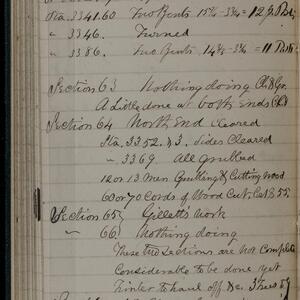 Sta. 3341.60 Two Bents 15¾ - 3¾ = 12 ft
" 3346. Turned
" 3386. Two Bents 14¾ - 3¾ = 11
Section 63 Nothing doing
A little done at both Ends
Section 64 North End cleared
Sta. 3352. & 3. Sides Cleared
" 3369 All grubbed
12 or 13. Men Grubbing & Cutting wood
60 or 70 Cords of Wood Cut.
Section 65 Gillett's work
" 66 Nothing doing
These two Sections are not Complete
Considerable to be done yet
to haul off.